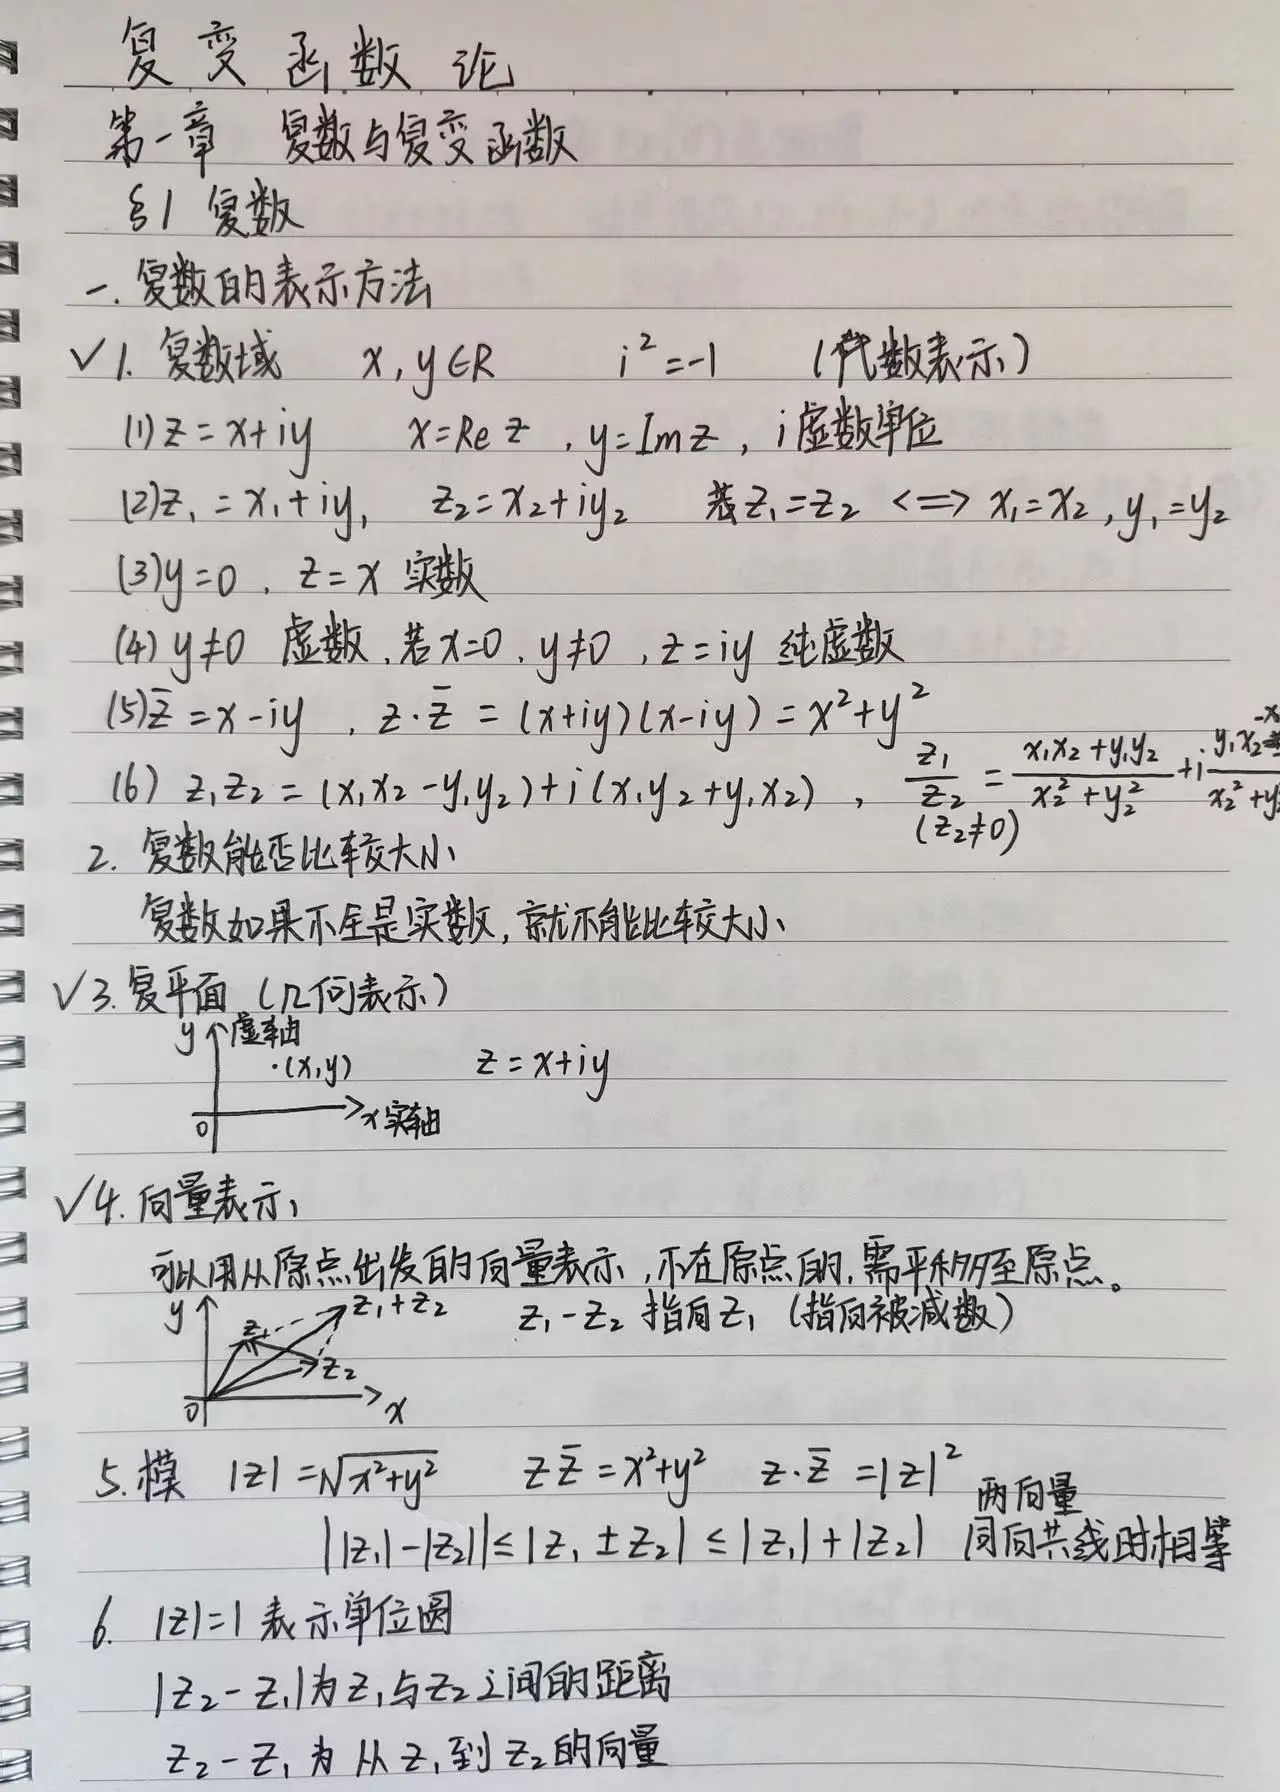 复变函数论
第一章 复数与复变函数
§1 复数
一. 复数的表示方法
✓1. 复数域 x, y∈R i²=-1 (代数表示)
(1) z=x+iy x=Re z, y=Im z, i虚数单位
(2) z₁=x₁+iy₁ z₂=x₂+iy₂ 若z₁=z₂ <=> x₁=x₂, y₁=y₂
(3) y=0, z=x 实数
(4) y≠0 虚数, 若x=0, y≠0, z=iy 纯虚数
(5) z̄=x-iy, z·z̄=(x+iy)(x-iy)=x²+y²
(6) z₁z₂=(x₁x₂-y₁y₂)+i(x₁y₂+y₁x₂), z₁/z₂=(x₁x₂+y₁y₂)/(x₂²+y₂²)+i(y₁x₂-x)/(x₂²+y₂
(z₂≠0)
2. 复数能否比较大小
复数如果不全是实数, 就不能比较大小
✓3. 复平面 (几何表示)
y 虚轴
·(x,y) z=x+iy
0 x实轴
✓4. 向量表示
可以用从原点出发的向量表示, 不在原点的, 需平移至原点。
y z₁ z₁+z₂ z₁-z₂ 指向z₁ (指向被减数)
z₂
0 x
5. 模 |z|=√(x²+y²) zz̄=x²+y² z·z̄=|z|²
||z₁|-|z₂||≤|z₁±z₂|≤|z₁|+|z₂| 两向量同向共线时相等
6. |z|=1 表示单位圆
|z₂-z₁|为z₁与z₂之间的距离
z₂-z₁为从z₁到z₂的向量